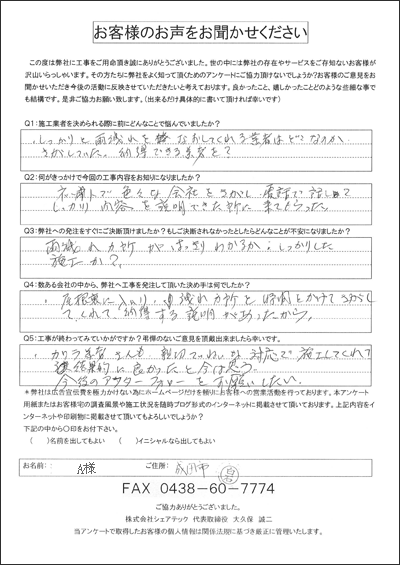 お客様のお声をお聞かせください
この度は弊社に工事をご用命頂き誠にありがとうございました。世の中には弊社の存在やサービスをご存知ないお客様が
沢山いらっしゃいます。その方たちに弊社をよく知って頂くためのアンケートにご協力頂けないでしょうか?お客様のご意見をお
聞かせいただき今後の活動に反映させていただきたいと考えております。良かったこと、嬉しかったことどのような些細な事で
も結構です。是非ご協力お願い致します。(出来るだけ具体的に書いて頂ければ幸いです)
Q1:施工業者を決められる際に前にどんなことで悩んでいましたか?
・しっかりと雨漏れをなおしてくれる業者はどこなのか
さがしていた。納得できる業者を?
Q2:何がきっかけで今回の工事内容をお知りになりましたか?
ネットで色々な会社をさがし電話で話して
しっかり内容を説明できた所に来てもらった
Q3:弊社への発注をすぐにご決断頂けましたか?もしご決断されなかったとしたらどんなことが不安になりましたか?
雨漏れカ所がはっきりわかるか?しっかりした
施工か?
Q4:数ある会社の中から、弊社へ工事を発注して頂いた決め手は何でしたか?
・屋根裏に入り、雨漏れカ所と時間をかけてさがし
てくれて、納得する説明があったから。
Q5:工事が終わってみていかがですか?弔憚のないご意見を頂戴出来ましたら幸いです。
・カワラ業者さんも親切でていねいな対応で施工してくれて
結果的に良かったと今は思う。
今後のアフターフォローをお願いしたい。
*弊社は広告宣伝費を極力かけない為にホームページだけを頼りにお客様への営業活動を行っております。本アンケート
用紙またはお客様宅の調査風景や施工状況を随時ブログ形式のインターネットに掲載させて頂いております。上記内容をイ
ンターネットや印刷物に掲載させて頂いてもよろしいでしょうか?
下記の中から○印をお付下さい。
( )名前を出してもよい ( )イニシャルなら出してもよい
お名前: A様 ご住所: 成田市
FAX 0438-60-7774
ご協力ありがとうございました。
株式会社シェアテック 代表取締役 大久保 誠二
当アンケートで取得したお客様の個人情報は関係法規に基づき厳正に管理いたします。